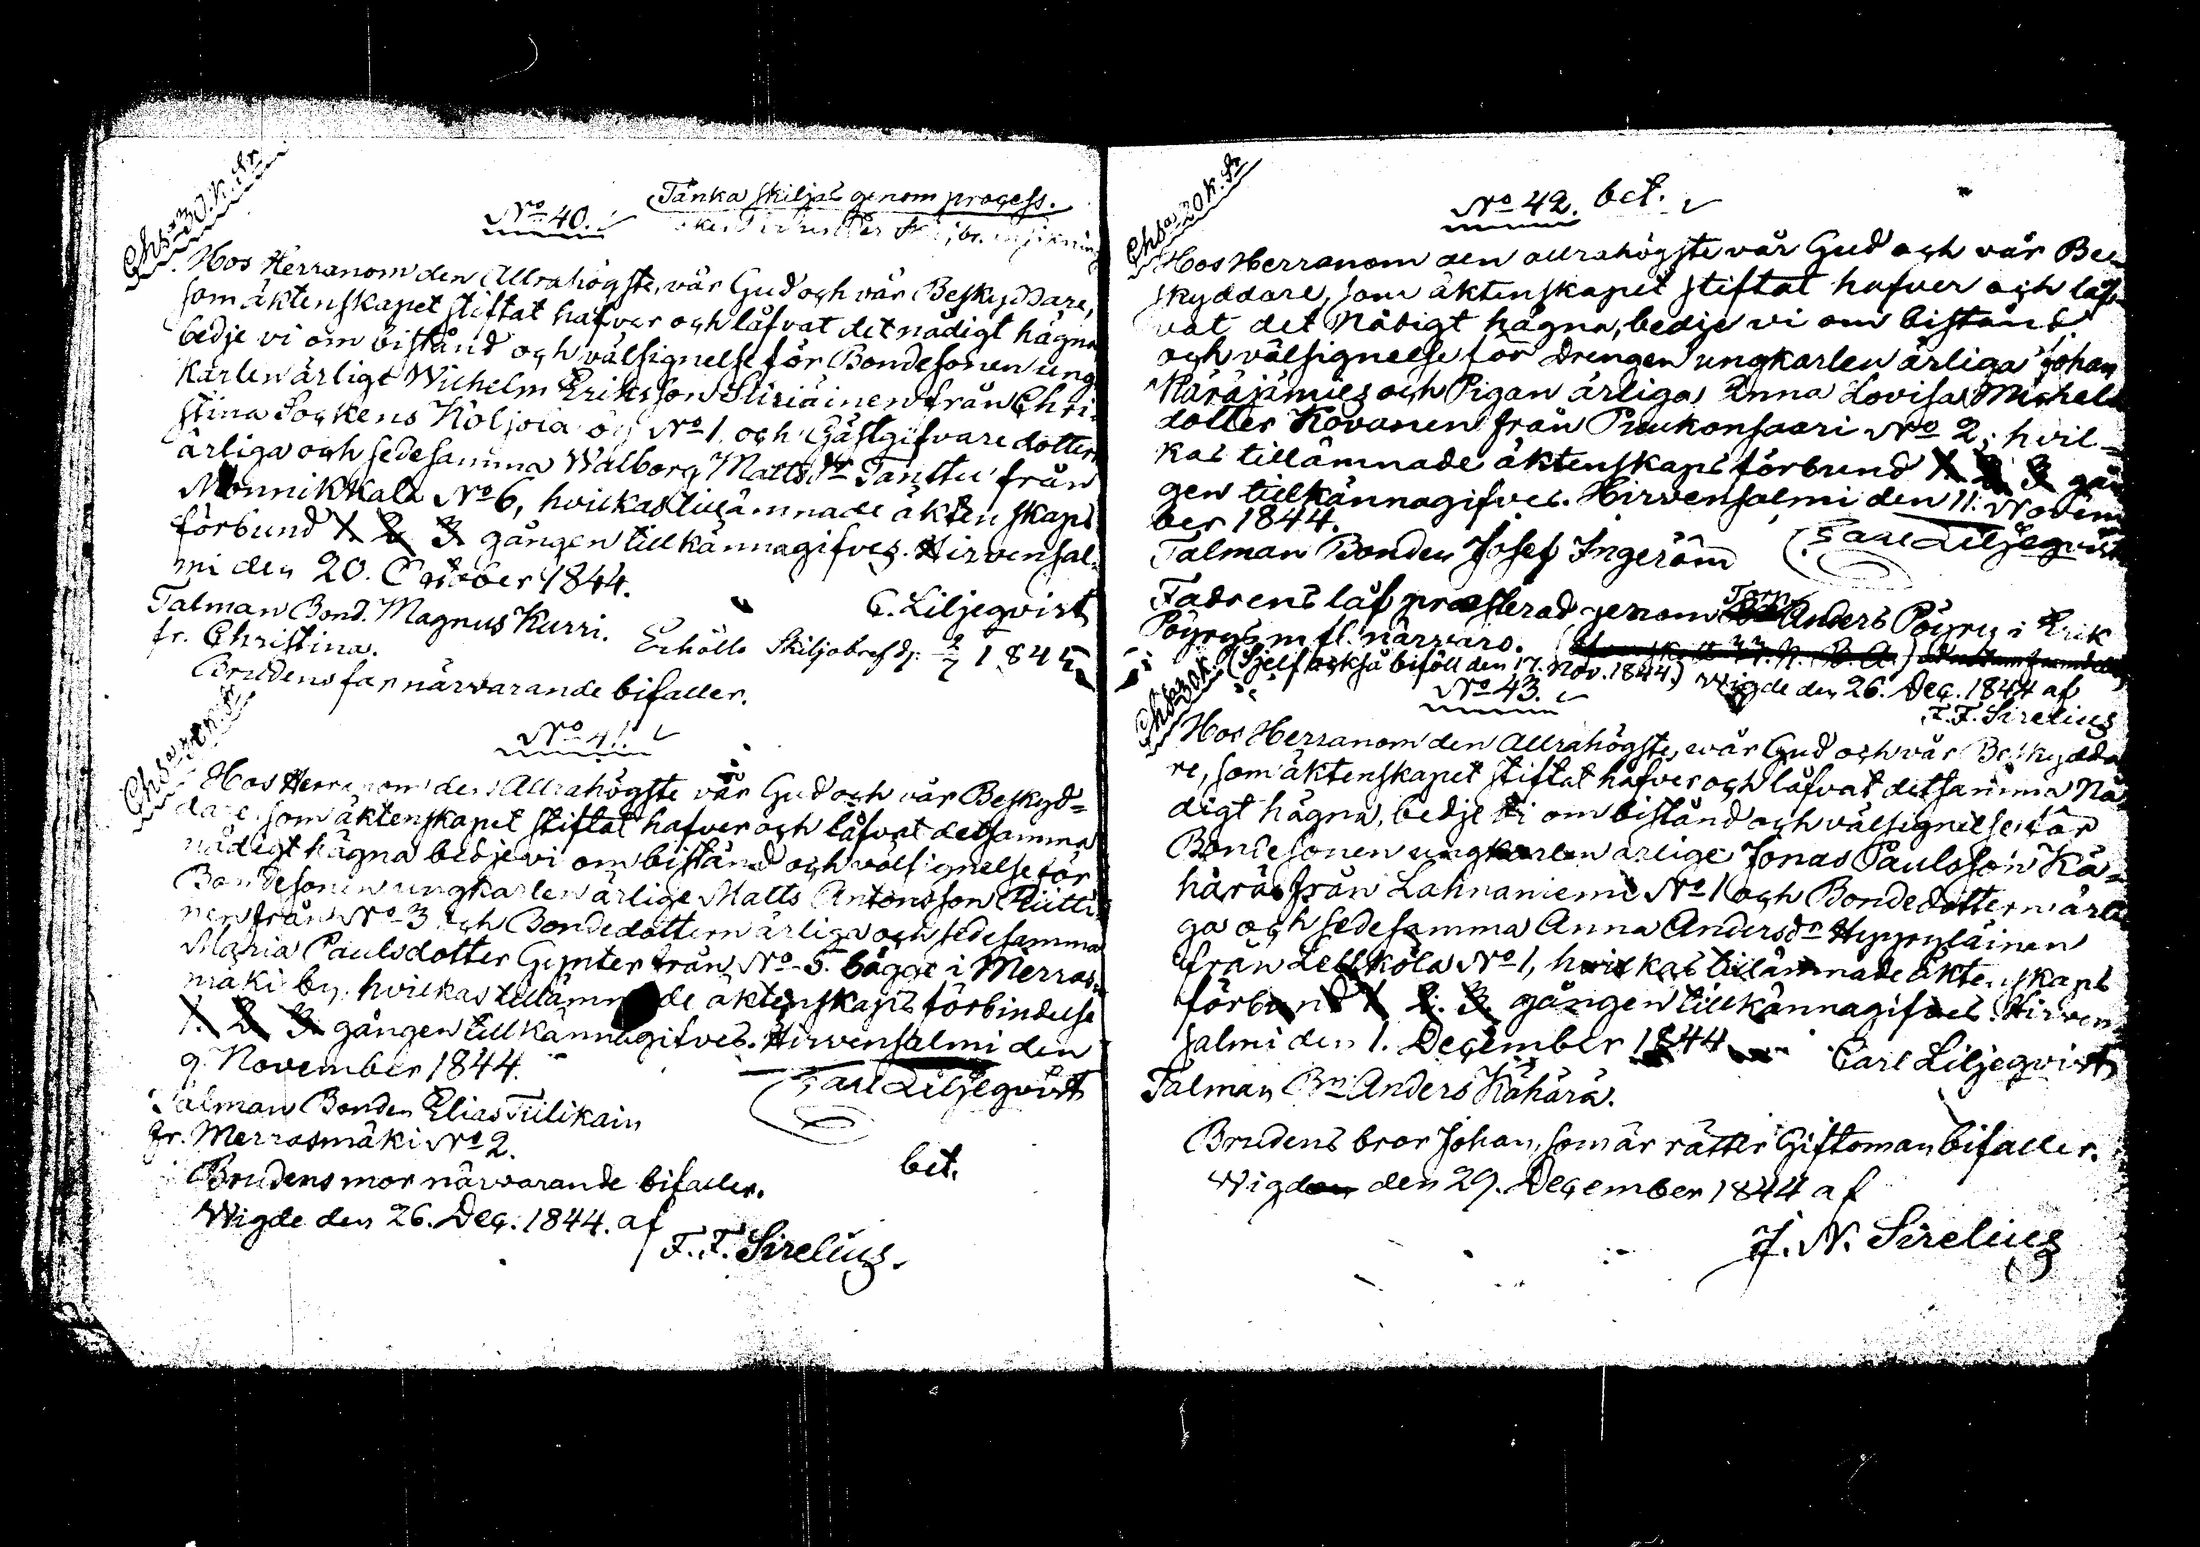 Chsa 30. k. Sr
No 40.
Tänka skiljas genom process.
Hos Herranom den Allrahögste, vår Gud och vår Beskyddare,
som äktenskapet stiftat hafver och låfvat det nådigt hägna
bedje vi om bistånd och välsignelse för Bondesonen ung
karlen ärlige Wilhelm Eriksson Siiriäinen från Chri-
stina Sockens Koljola by No 1. och Gästgifvare dottern
ärliga och sedesamma Walborg Mattsdr Tanttu från
Monnikkala No 6, hvilkas tillämnade äktenskaps
förbund 1. 2. 3. gången tillkännagifves. Hirvensal-
mi den 20. October 1844.
C. Liljeqvist
Talman Bond. Magnus Kurri.
fr. Christina.
Erhöllo Skiljobref d. 2/7 1845
Brudens far närvarande bifaller.
No 41.
Hos Herranom den Allrahögste vår Gud och vår Beskyd=
dare som äktenskapet stiftat hafver och låfvat detsamma
nådigt hägna bedje vi om bistånd och välsignelse för
Bondesonen ungkarlen ärlige Matts Antonsson Pütti
nen från No 3 och Bondedottern ärliga och sedesamma
Maria Paulsdotter Gynter från No 5. bägge i Merras-
mäki by, hvilkas tillämnade äktenskaps förbindelse
1. 2. 3. gången tillkännagifves. Hirvensalmi den
9 November 1844.
Carl Liljeqvist
Talman Bonden Elias Tiilikain
fr. Merrasmäki No 2.
bet.
Brudens mor närvarande bifaller.
Wigde den 26. Dec. 1844. af
F. F. Sirelius.
Chsa 20 k. Sr
No 42. bet.
Hos Herranom den allrahögste vår Gud och vår Be-
skyddare, som äktenskapet stiftat hafver och låf-
vat det Nådigt hägna, bedje vi om bistånd
och välsignelse för Drengen ungkarlen ärliga Johan
Käräjämies och Pigan ärliga Anna Lovisa Michels
dotter Kovanen från Puukonsaari No 2, hvil-
kas tillämnade äktenskaps förbund 1. 2. 3. gån
gen tillkännagifves. Hirvensalmi den 11. Novem
ber 1844.
Carl Liljeqvist
Talman Bonden Josef Ingeröin
Fadrens låf præsterad genom Torp. Anders Pöyry i Erik
Pöyrys m fl. närvaro.
(Sjelf också biföll den 17. Nov. 1844.) Wigde den 26. Dec. 1844 af
F. F. Sirelius
No 43.
Hos Herranom den Allrahögste, vår Gud och vår Beskydda
re, som äktenskapet stiftat hafver och låfvat detsamma Nå
digt hägna, bedje vi om bistånd och välsignelse för
Bondesonen ungkarlen ärlige Jonas Paulsson Kä-
härä från Lahnaniemi No 1 och Bondedottern ärli
ga och sedesamma Anna Andersdr Hyyryläinen
från Lellkola No 1, hvilkas tillämnade äktenskaps
förbund 1. 2. 3. gången tillkännagifves. Hirven
salmi den 1. December 1844
Carl Liljeqvist
Talman Bn Anders Kähärä.
Brudens bror Johan, som är rätter Giftoman bifaller.
Wigde den 29. December 1844 af
J. N. Sirelius